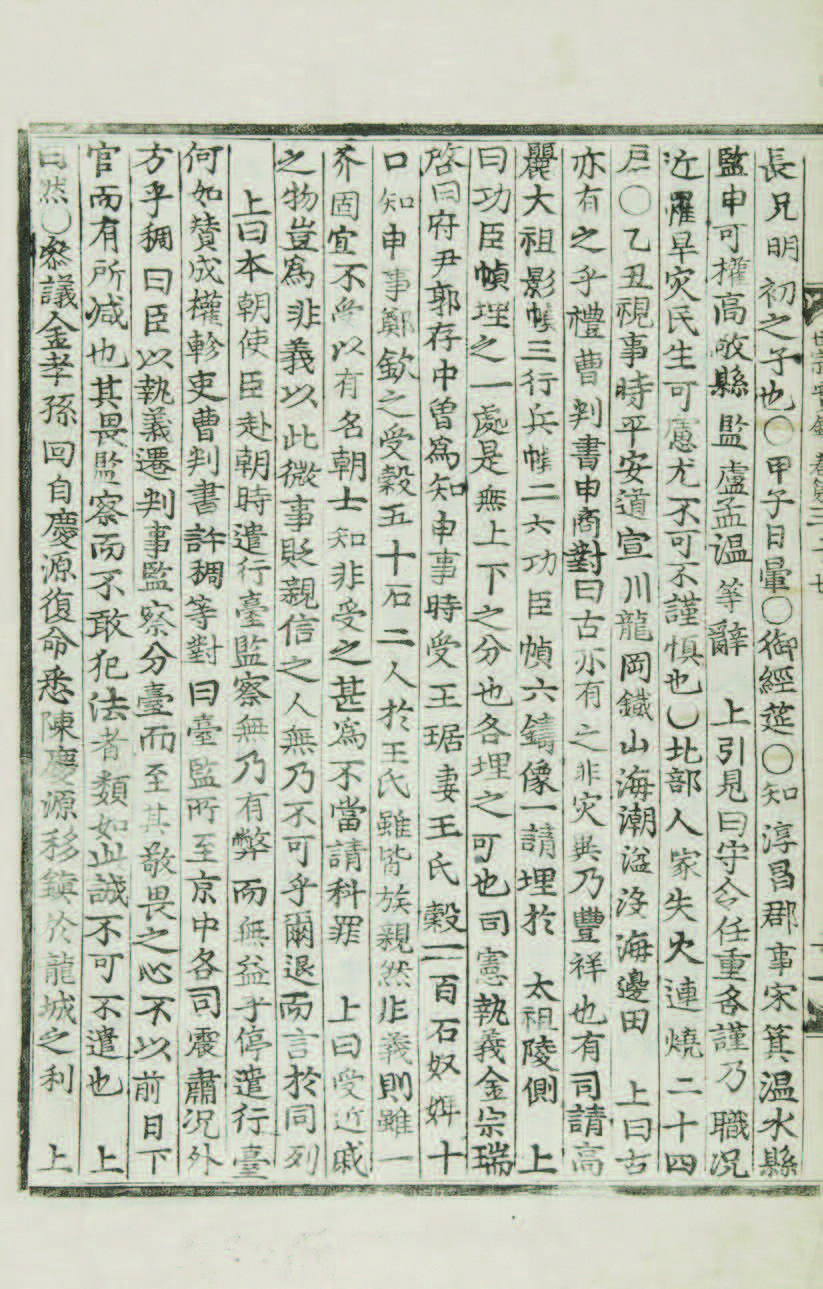 長兄明初之子也○甲子日暈○御經筵○知淳昌郡事宋箕溫水縣
監申可權高敞縣監盧孟溫等辭　上引見曰守令任重各謹乃職况
近罹旱灾民生可慮尤不可不謹愼也○北部人家失火連燒二十四
戶○乙丑視事時平安道宣川龍岡鐵山海潮溢沒海邊田　上曰古
亦有之乎禮曹判書申商對曰古亦有之非灾異乃豐祥也有司請高
麗大祖影幀三行兵幀二六功臣幀六鑄像一請埋於　太祖陵側　上
曰功臣幀埋之一處是無上下之分也各埋之可也司憲執義金宗瑞
啓曰府尹郭存中曾爲知申事時受王琚妻王氏穀一百石奴婢十
口知申事鄭欽之受穀五十石二人於王氏雖皆族親然非義則雖一
芥固宜不受以有名朝士知非受之甚爲不當請科罪　上曰受近戚
之物豈爲非義以此微事貶親信之人無乃不可乎爾退而言於同列
上曰本朝使臣赴朝時遣行臺監察無乃有弊而無益乎停遣行臺
何如贊成權軫吏曹判書許稠等對曰臺監所至京中各司震肅况外
方乎稠曰臣以執義遷判事監察分臺而至其敬畏之心不以前日下
官而有所减也其畏監察而不敢犯法者類如此誠不可不遣也　上
曰然○叅議金孝孫回自慶源復命悉陳慶源移鎭於龍城之利　上